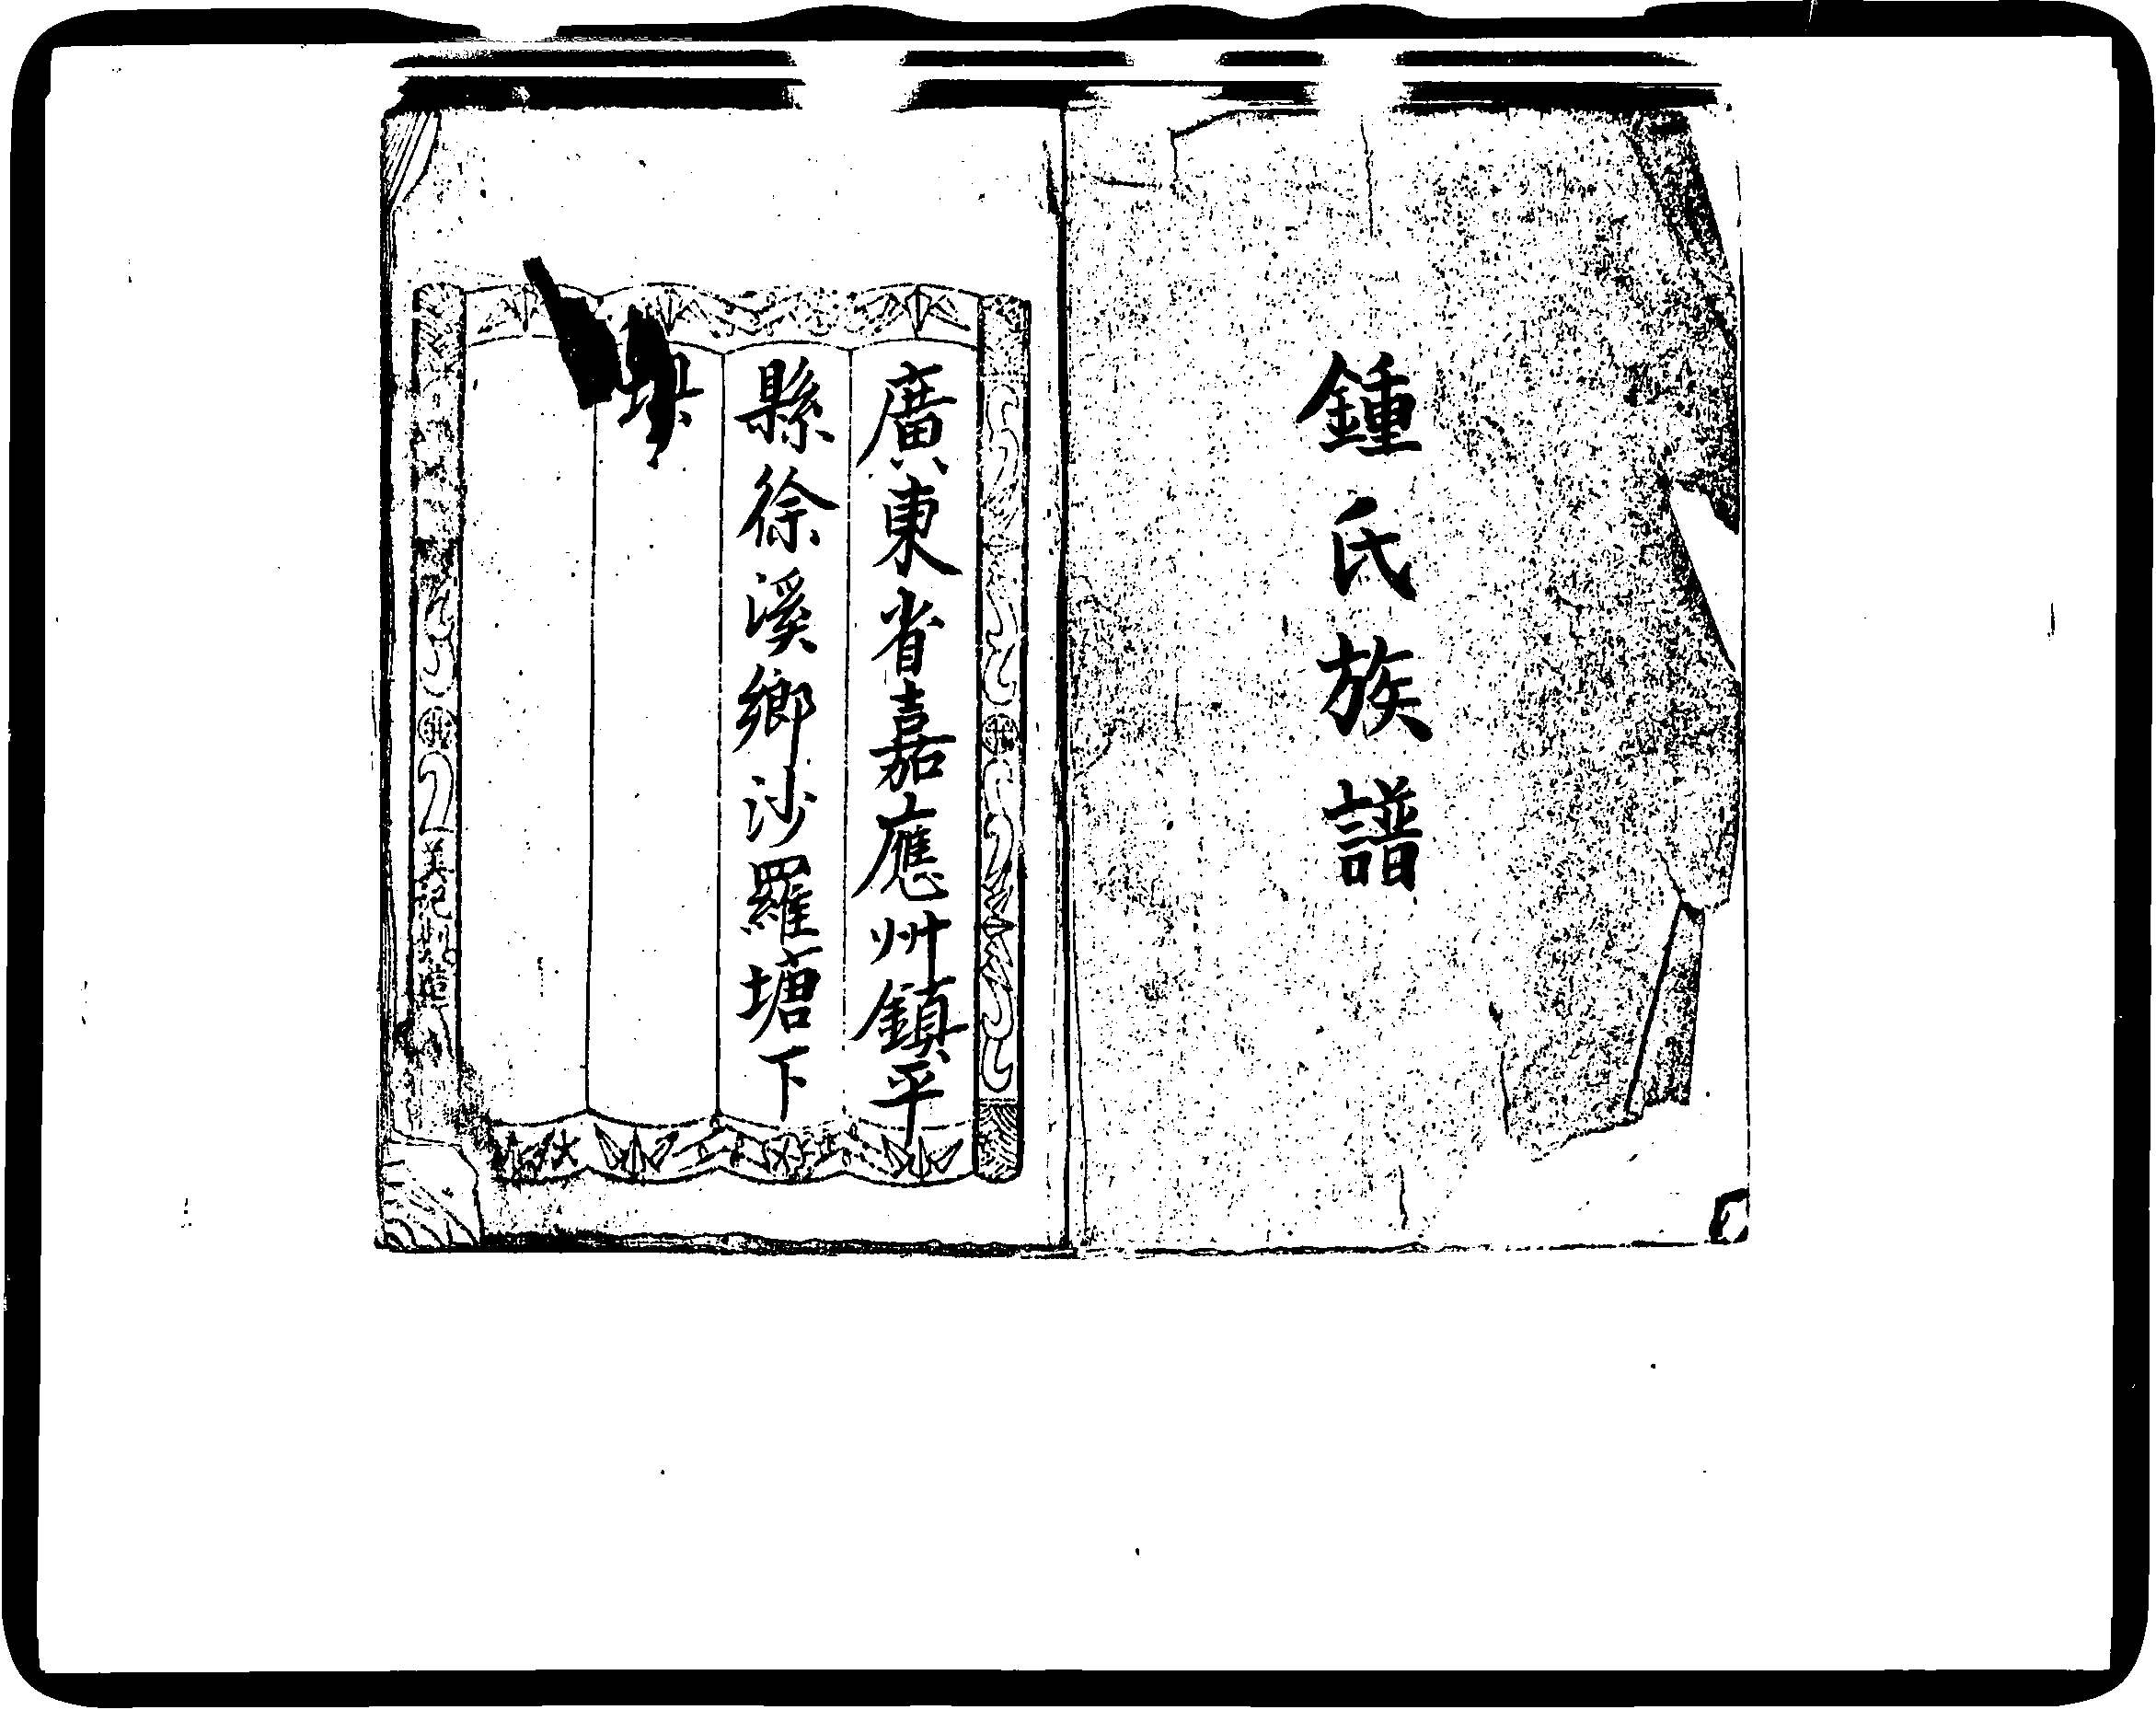 鍾氏族譜
廣東省嘉應州鎮平
縣徐溪鄉沙羅塘下